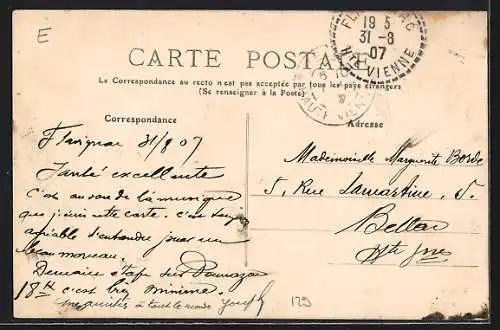 E
CARTE POSTALE
Le Correspondance au recto n'est pas acceptée par tous les pays étrangers
(Se renseigner à la Poste)
FLAVIGNAC
19 5
31-8
07
HTE VIENNE
Correspondance
Flavignac 31/8 07
Santé excellente
C'est au son de la musique
que j'écris cette carte. c'est
agréable d'entendre jouer un
beau morceau.
Demain étape sur
18 c'est très minime.
amitiés à tout le monde Joseph
Adresse
Mademoiselle Marguerite Borde
5, Rue Lamartine, 5.
Bellac
Hte Vne
129